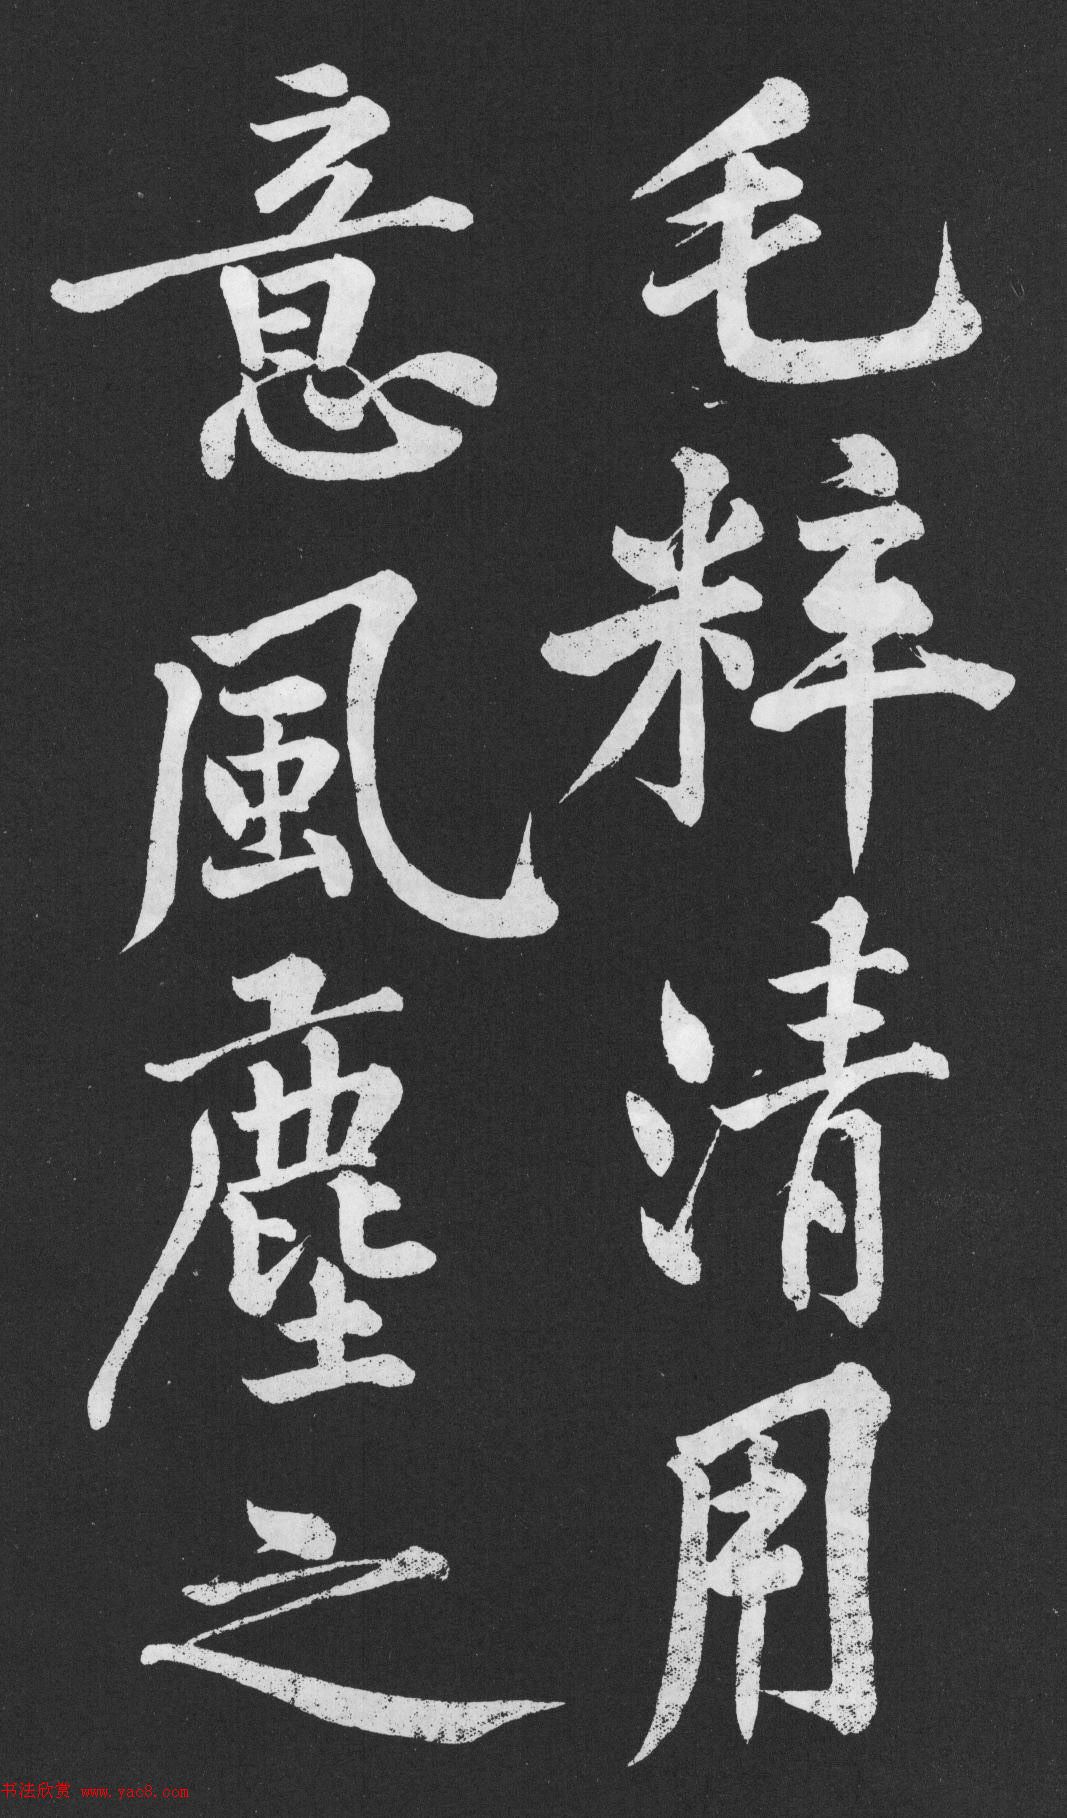 毛粹清用
意風塵之
书法欣赏 www.yac8.com